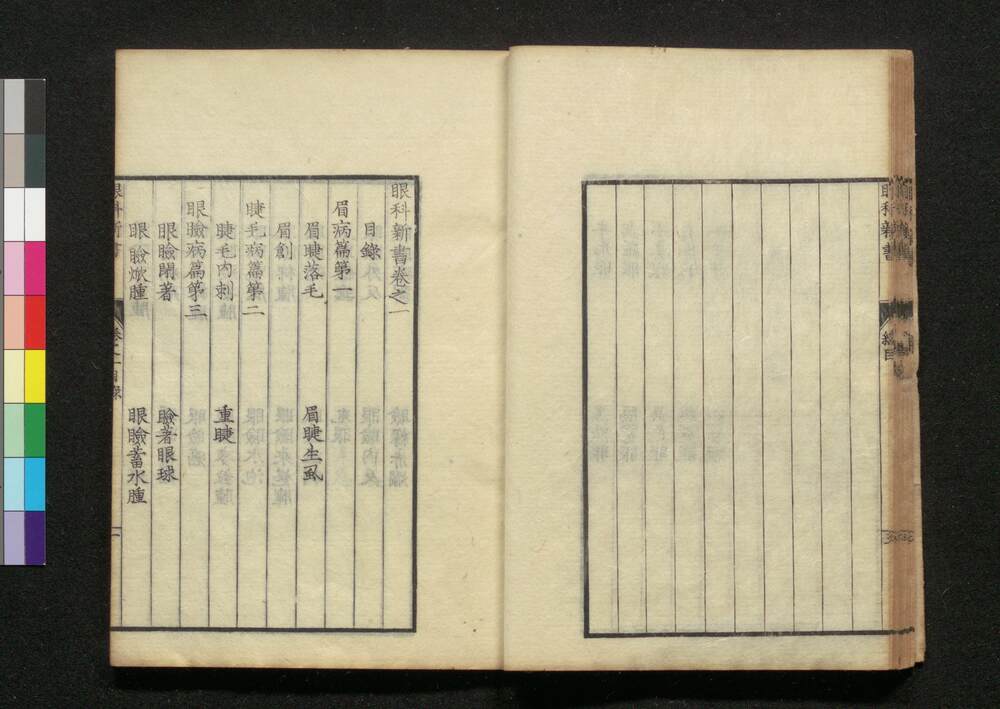 眼科新書
總目
眼科新書卷之一
目錄
眉病篇第一
眉睫落毛 眉睫生虱
眉創
睫毛病篇第二
睫毛内刺 重睫
眼瞼病篇第三
眼瞼閉著 瞼著眼球
眼瞼焮腫 眼瞼蓄水腫
眼科新書
卷之一目錄
一